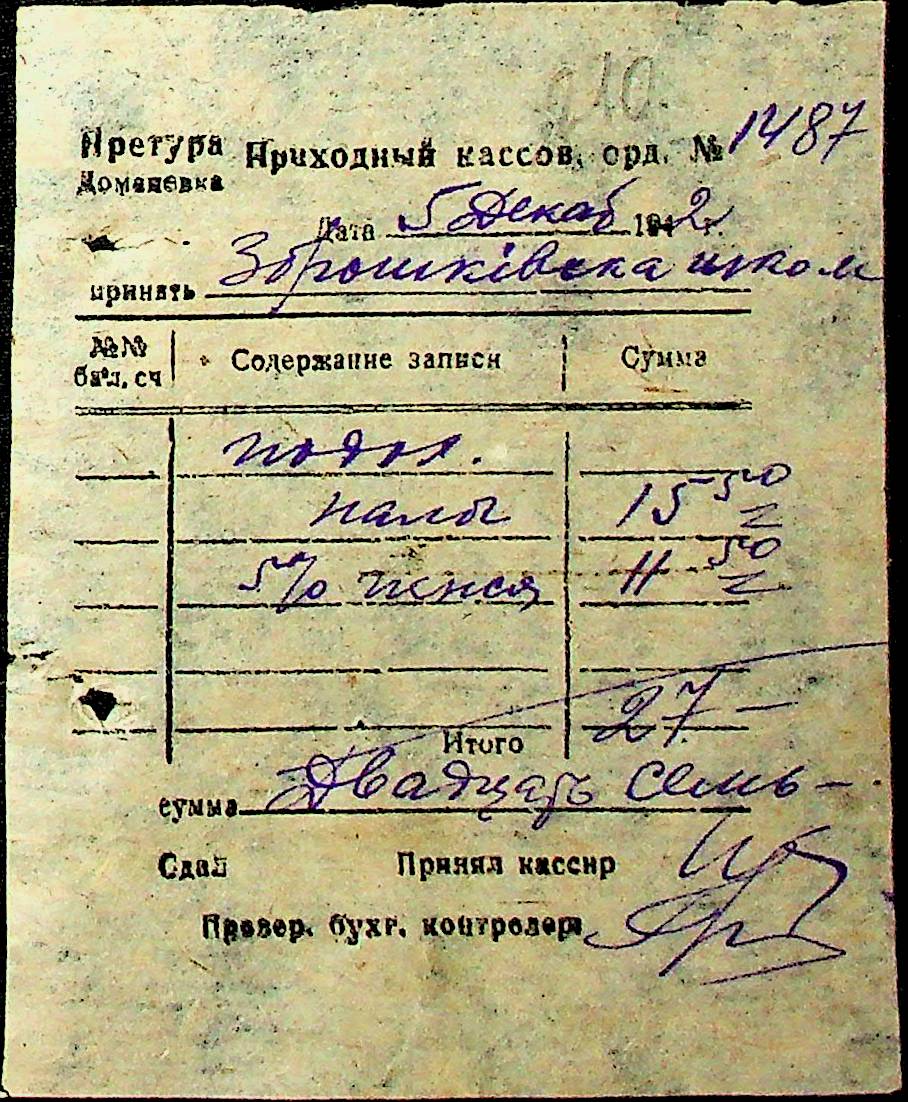 210.
Претура Приходный кассов. орд. № 1487
Доманевка
Дата 5 Декаб 1942 г.
принять Зброшківска школ
№№ бал. сч Содержание записи Сумма
подох.
налог 15 50
5% пенся 11 50
Итого 27 —
сумма Двадцать семь —
Сдал Принял кассир
Провер. бухг. контролер